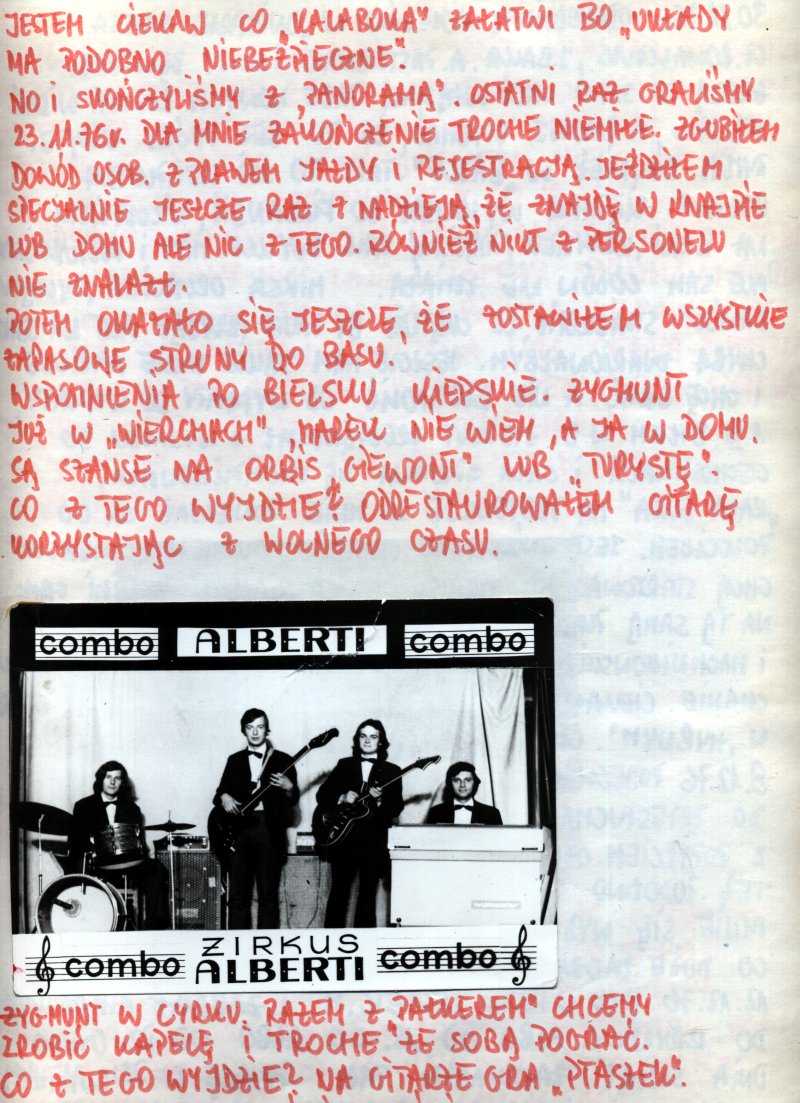 JESTEM CIEKAW CO „KALABOKA" ZAŁATWI BO „UKŁADY
MA PODOBNO NIEBEZPIECZNE"
NO I SKOŃCZYLIŚMY Z „PANORAMĄ". OSTATNI RAZ GRALIŚMY
23.11.76r. DLA MNIE ZAKOŃCZENIE TROCHE NIEMIŁE. ZGUBIŁEM
DOWÓD OSOB. Z PRAWEM JAZDY I REJESTRACJĄ. JEŹDZIŁEM
SPECJALNIE JESZCZE RAZ Z NADZIEJĄ, ŻE ZNAJDĘ W KNAJPIE
LUB DOMU ALE NIC Z TEGO. RÓWNIEŻ NIKT Z PERSONELU
NIE ZNALAZŁ
POTEM OKAZAŁO SIĘ JESZCZE, ŻE ZOSTAWIŁEM WSZYSTKIE
ZAPASOWE STRUNY DO BASU.
WSPOMNIENIA PO BIELSKU KIEPSKIE. ZYGMUNT
JUŻ W „WIERCHACH", MAREK NIE WIEM, A JA W DOMU.
SĄ SZANSE NA ORBIS „GIEWONT" LUB „TURYSTĘ"
CO Z TEGO WYJDZIE? ODRESTAUROWAŁEM GITARĘ
KORZYSTAJĄC Z WOLNEGO CZASU.
combo ALBERTI combo
combo ZIRKUS ALBERTI combo
ZYGMUNT W CYRKU RAZEM Z „PAŁKEREM" CHCEMY
ZROBIĆ KAPELĘ I TROCHE ZE SOBĄ POGRAĆ.
CO Z TEGO WYJDZIE? NA GITARZE GRA „PTASZEK".